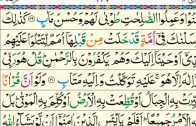 وَعَمِلُوا الصّٰلِحٰتِ طُوْبٰى لَهُمْ وَحُسْنُ مَاٰبٍ كَذٰلِكَ
اَرْسَلْنٰكَ فِيْٓ اُمَّةٍ قَدْ خَلَتْ مِنْ قَبْلِهَآ اُمَمٌ لِّتَتْلُوَا۟ عَلَيْهِمُ
الَّذِيْٓ اَوْحَيْنَآ اِلَيْكَ وَهُمْ يَكْفُرُوْنَ بِالرَّحْمٰنِ قُلْ هُوَ رَبِّيْ
لَآ اِلٰهَ اِلَّا هُوَ عَلَيْهِ تَوَكَّلْتُ وَاِلَيْهِ مَتَابِ وَلَوْ اَنَّ قُرْاٰنًا
سُيِّرَتْ بِهِ الْجِبَالُ اَوْ قُطِّعَتْ بِهِ الْاَرْضُ اَوْ كُلِّمَ بِهِ الْمَوْتٰى